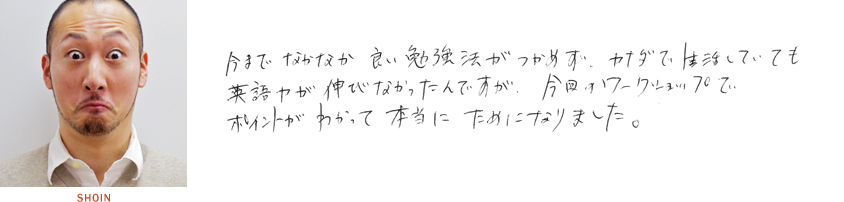 今まで なかなか 良い勉強法が つかめず、カナダで生活していても
英語力が伸びなかったんですが、今回のワークショップで、
ポイントが わかって 本当に ためになりました。
SHOIN